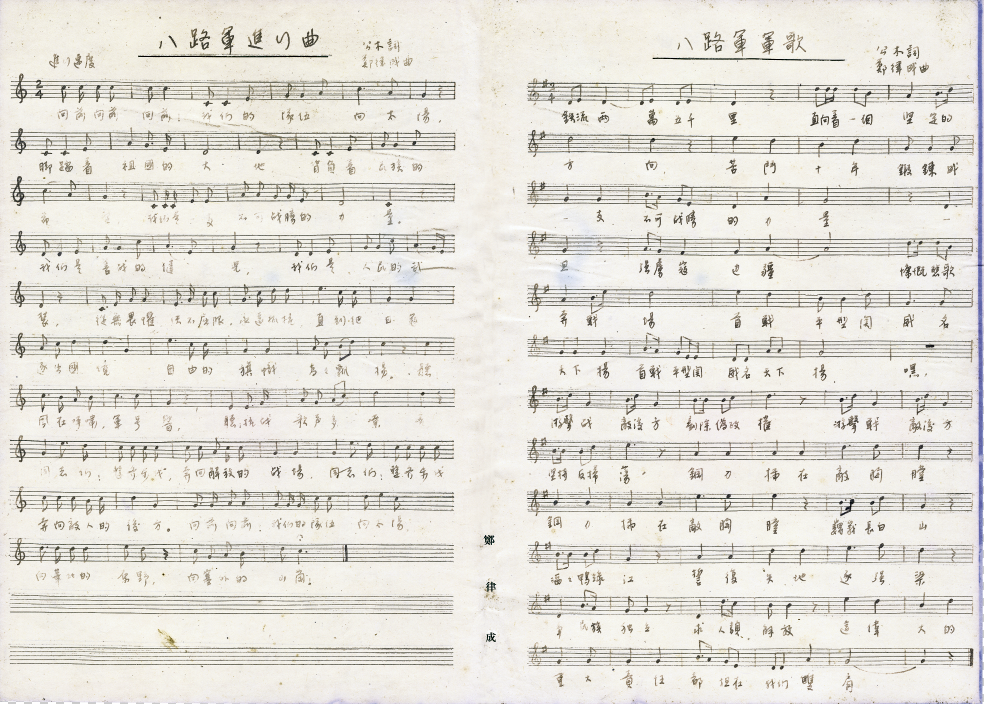 八路軍進行曲
公木詞
鄭律成曲
進行速度
向前向前 向前! 我们的 隊伍 向太陽,
脚踏着 祖國的 大 地 背負着 民族的
希 我们是 支 不可战勝的 力 量。
我们是 善战的 健 兒, 我们是 人民的 武
裝, 從無畏懼 决不屈服, 永遠抵抗 直到把日寇
逐出國境 自由的 旗幟 高高飄揚。 聽
風在呼嘯, 軍号 响, 聽,抗战 歌声多 嘹
同志们, 整齐步伐, 奔向解放的 战場, 同志们, 整齐步伐
奔向敵人的 後方。 向前向前, 我们的隊伍 向太陽
向華北的 原野, 向塞外的 山崗!
八路軍軍歌
公木詞
鄭律成曲
鐵流 兩 萬 五千 里 直向着 一個 堅 定的
方 向 苦 鬥 十 年 鍛 鍊 成
一 支 不可 战勝 的 力 量 一
旦 強虜 寇 边 疆 慷慨 悲歌
奔 戰 場 首 戰 平 型 関 威 名
天下 揚 首戰 平型関 威名 天下 揚 嘿,
游擊 战 敵後 方 剷除 偽政 權 游擊 戰 敵後 方
堅持 反掃 蕩 鋼 刀 插 在 敵 胸 膛
鋼 刀 插 在 敵 胸 膛 巍峩 長白 山
滔滔 鴨綠 江 誓 復 失 地 逐 強 梁
爭 民族 独立 求 人類 解放 這 偉 大 的
重 大 責 任 都 担在 我们 雙 肩
鄭律成